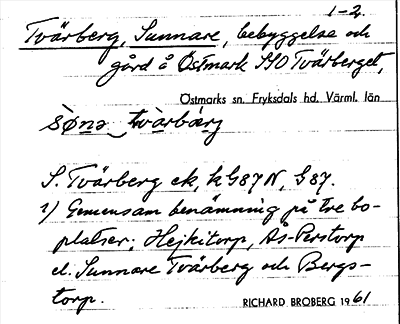 1-2.
Tvärberg, Sunnare, bebyggelse och
gård å Östmark SSO Tvärberget,
Östmarks sn. Fryksdals hd. Värml. län
sònə tvàrbærj
S. Tvärberg ek, kG87N, G87.
1) Gemensam benämning på tre bo-
platser: Hejkitorp, Ås-Perstorp
el. Sunnare Tvärberg och Bergs-
torp.
RICHARD BROBERG 1961